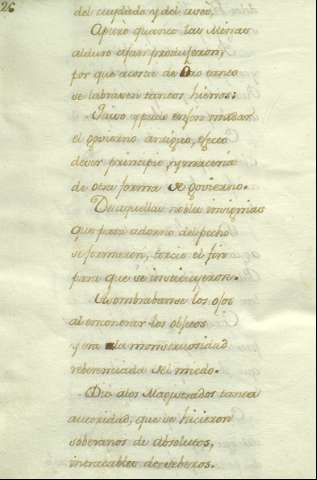 26
del cuydado y del aseo,
Apuró quanto las Minas
al duro afan produxeron,
por que acosta de Oro tanto
se labrasen tantos hierros:
Quiso y pudo en fin mudar
el govierno antiguo, efecto
de ver principio, y materia
de otra forma de govierno.
De aquellas nobles insignias
que para adorno del pecho
se formaron, torcio el fin
para que se instituyeron.
Asombrabanse los ojos
al encontrar los objetos
y era la monstruosidad
reberenciada del miedo.
Dió alos Magistrados tanta
autoridad, que se hicieron
soberanos de absolutos,
intratables de soberos.